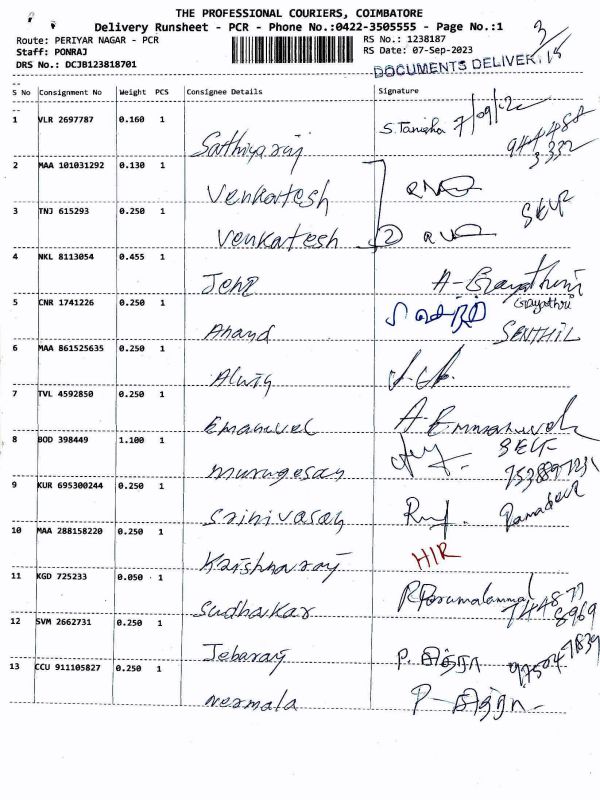 THE PROFESSIONAL COURIERS, COIMBATORE
Delivery Runsheet - PCR - Phone No.:0422-3505555 - Page No.:1
Route: PERIYAR NAGAR - PCR
RS No.: 1238187
Staff: PONRAJ
RS Date: 07-Sep-2023
DRS No.: DCJB123818701
3/15
DOCUMENTS DELIVER
S No Consignment No Weight PCS Consignee Details Signature
1 VLR 2697787 0.160 1 Sathiyaraj S. Tanisha 944488
3332
2 MAA 101031292 0.130 1 Venkatesh
3 TNJ 615293 0.250 1 Venkatesh 2 SELF
4 NKL 8113054 0.455 1 A-Gayathiri
Gayathri
5 CNR 1741226 0.250 1 Anand SENTHIL
6 MAA 861525635 0.250 1
7 TVL 4592850 0.250 1 Emanuvel A-Emmanuvel
8 BOD 398449 1.100 1 murugesan SELF
9 KUR 695300244 0.250 1 Srinivasan
10 MAA 288158220 0.250 1 Krishnaraj
11 KGD 725233 0.050 1 Sudhakar 74487
8969
12 SVM 2662731 0.250 1 Jebaraj P. சித்ரா
13 CCU 911105827 0.250 1 Nermala P- சித்ரா